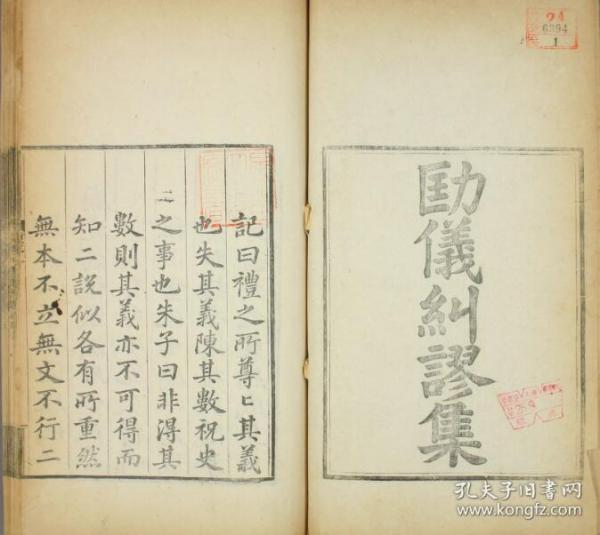 劻儀糾謬集
記曰禮之所尊〻其義
也失其義陳其數祝史
之事也朱子曰非得其
數則其義亦不可得而
知二說似各有所重然
無本不立無文不行二
24
6394
1
孔夫子旧书网
www.kongfz.com